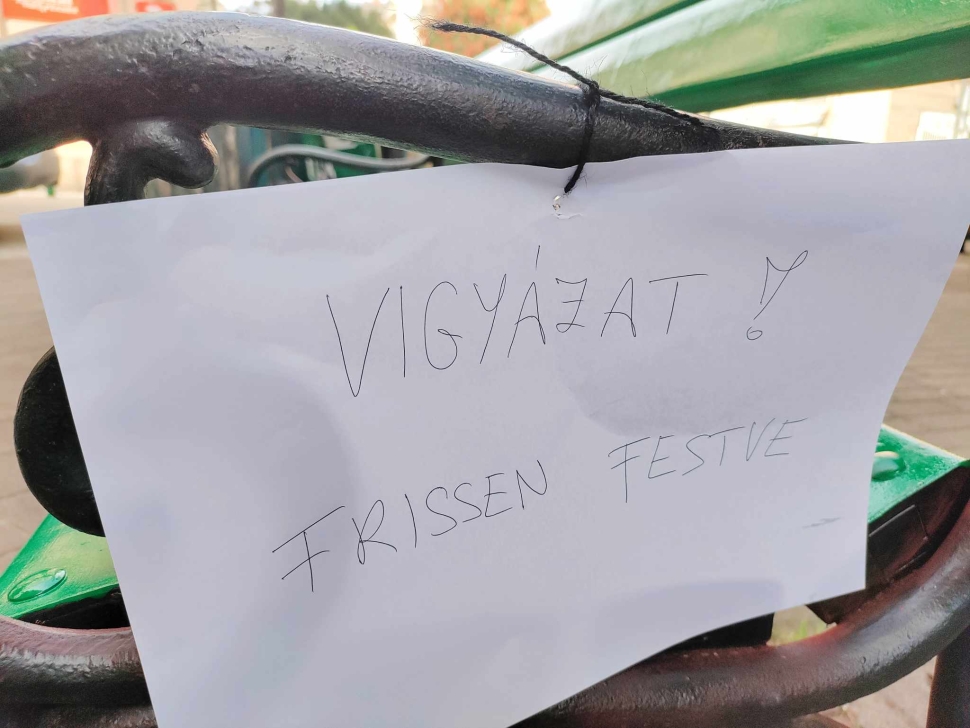 VIGYÁZAT!
FRISSEN FESTVE